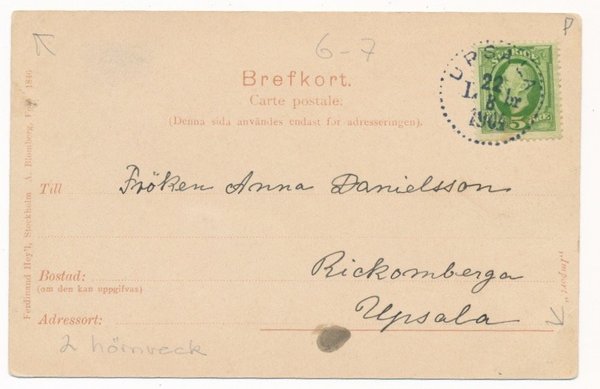 6-7
P
SVERIGE
UPSALA
22
L. br.
8
1904
5 ÖRE
Brefkort.
Carte postale.
(Denna sida användes endast för adresseringen).
Till Fröken Anna Danielsson
Bostad: Rickomberga
(om den kan uppgifvas)
Adressort: Upsala
2 hörnveck
Ferdinand Hey'l, Stockholm A. Blomberg,
"Import"